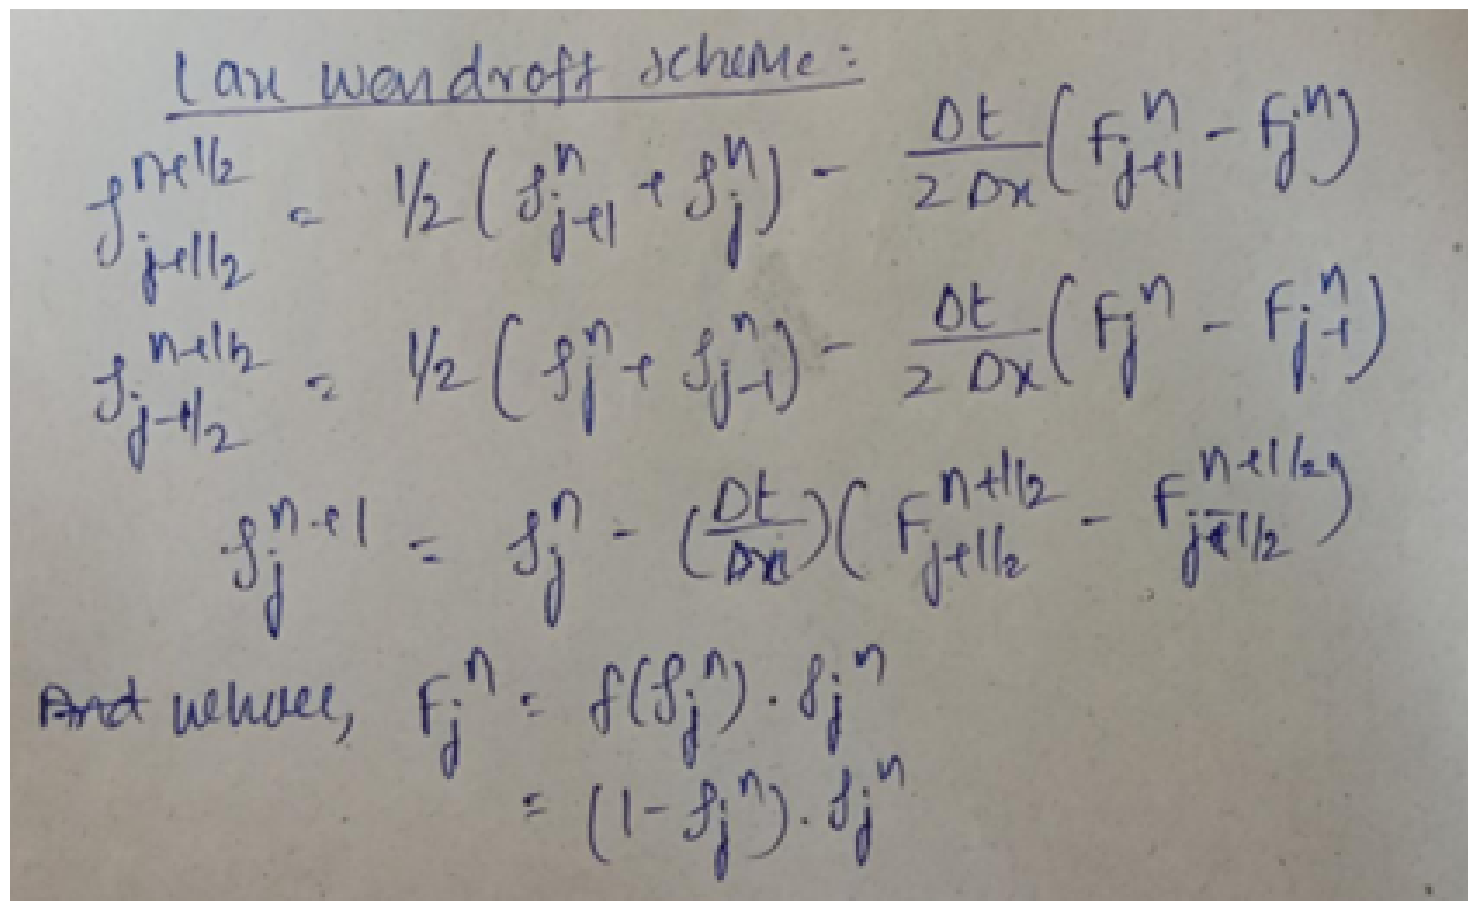 Lax wendroff scheme:
ρ_{j+1/2}^{n+1/2} = 1/2 (ρ_{j+1}^n + ρ_j^n) - Δt/(2 Δx) (F_{j+1}^n - F_j^n)
ρ_{j-1/2}^{n+1/2} = 1/2 (ρ_j^n + ρ_{j-1}^n) - Δt/(2 Δx) (F_j^n - F_{j-1}^n)
ρ_j^{n+1} = ρ_j^n - (Δt/Δx) (F_{j+1/2}^{n+1/2} - F_{j-1/2}^{n+1/2})
And where, F_j^n = f(ρ_j^n) . ρ_j^n
= (1 - ρ_j^n) . ρ_j^n